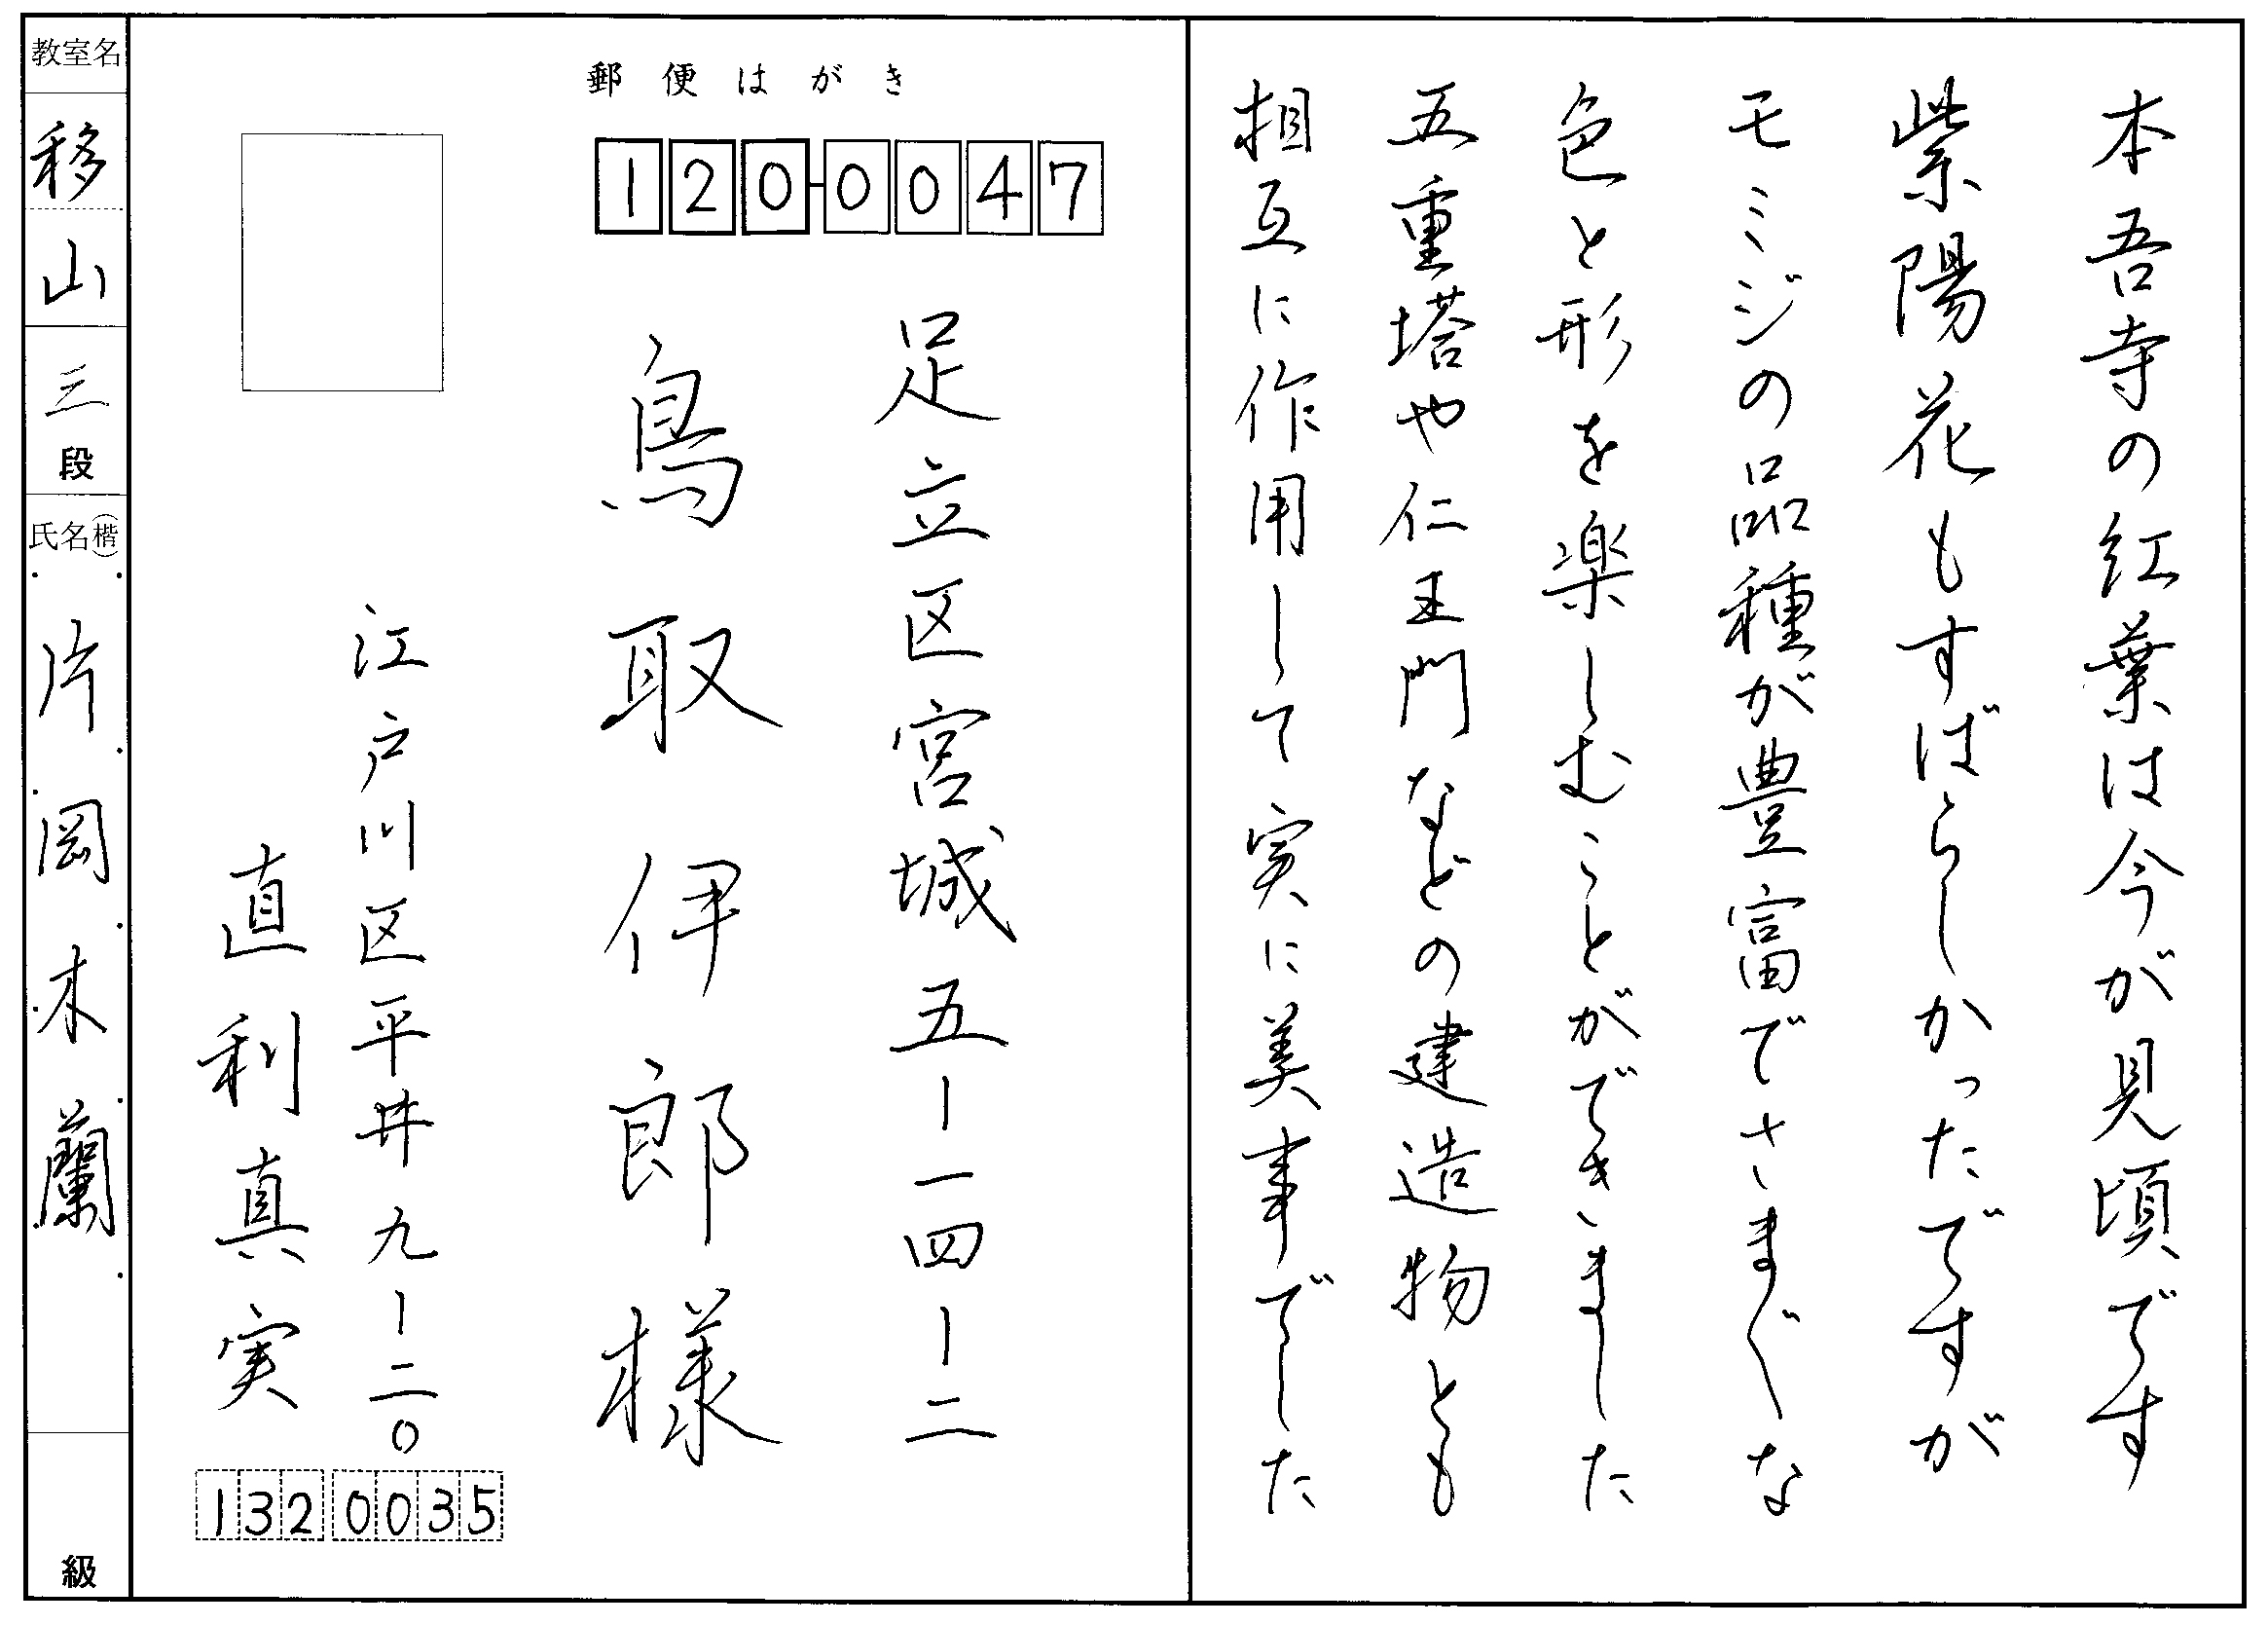 本吾寺の紅葉は今が見頃です
紫陽花もすばらしかったですが
モミジの品種が豊富でさまざまな
色と形を楽しむことができました
五重塔や仁王門などの建造物とも
相互に作用して実に美事でした
郵便はがき
120-0047
足立区宮城五ー一四ー二
鳥取伊郎様
江戸川区平井九ー二〇
直利真実
132 0035
教室名
移山
三段
氏名(楷)
片岡木蘭
級